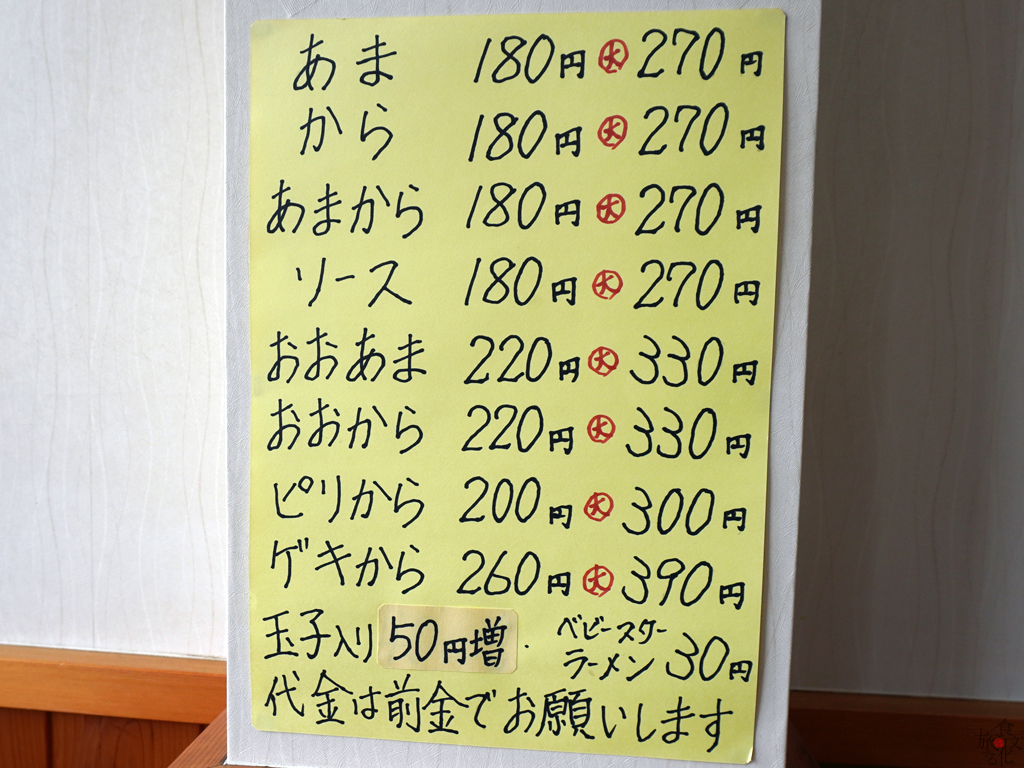 あま 180円 大 270円
から 180円 大 270円
あまから 180円 大 270円
ソース 180円 大 270円
おおあま 220円 大 330円
おおから 220円 大 330円
ピリから 200円 大 300円
ゲキから 260円 大 390円
玉子入り 50円増 ベビースターラーメン 30円
代金は前金でお願いします